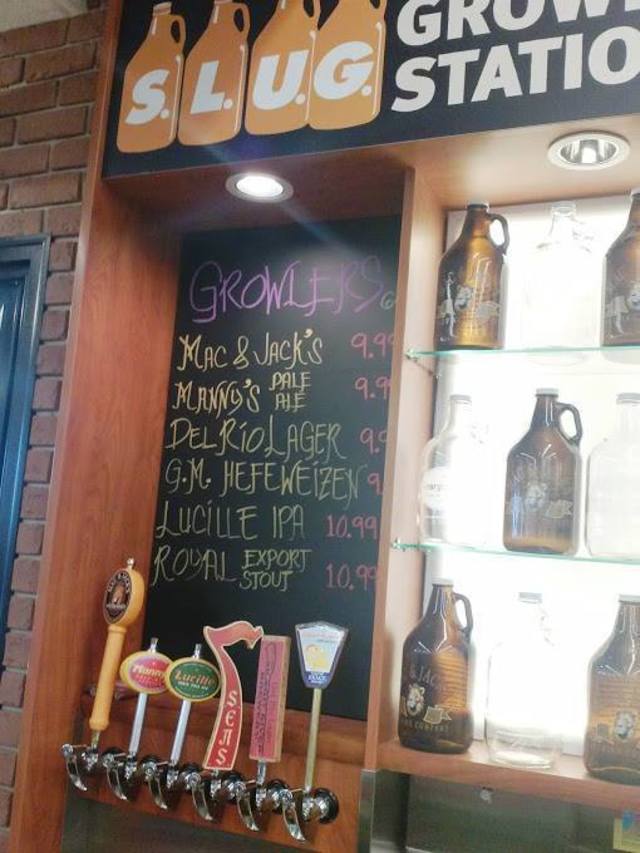 S.L.U.G.
GROWL
STATIO
GROWLERS
MAC & JACK'S 9.99
MANNY'S PALE ALE 9.9
DEL RIO LAGER 9.9
G.M. HEFEWEIZEN 9.
LUCILLE IPA 10.99
ROYAL EXPORT STOUT 10.99
Manny's
Lucille
7 SEAS
& JACK